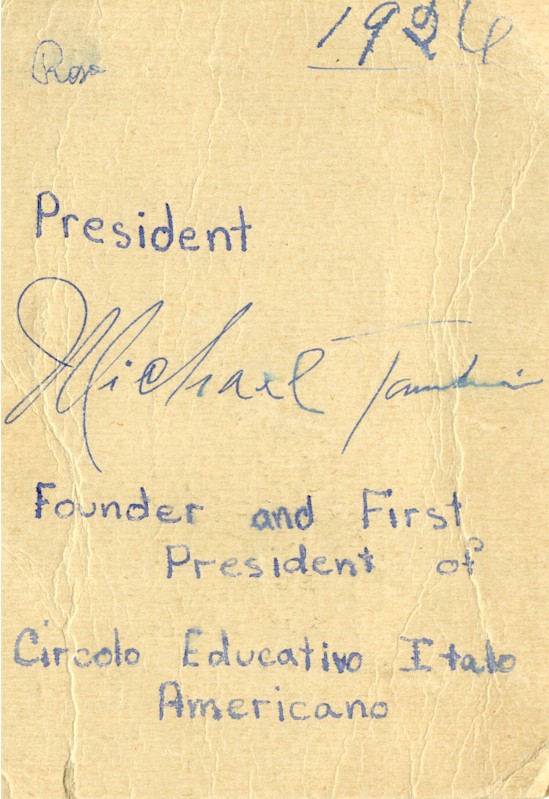 1926
Rose
President
Michael
Founder and First
President of
Circolo Educativo Italo
Americano